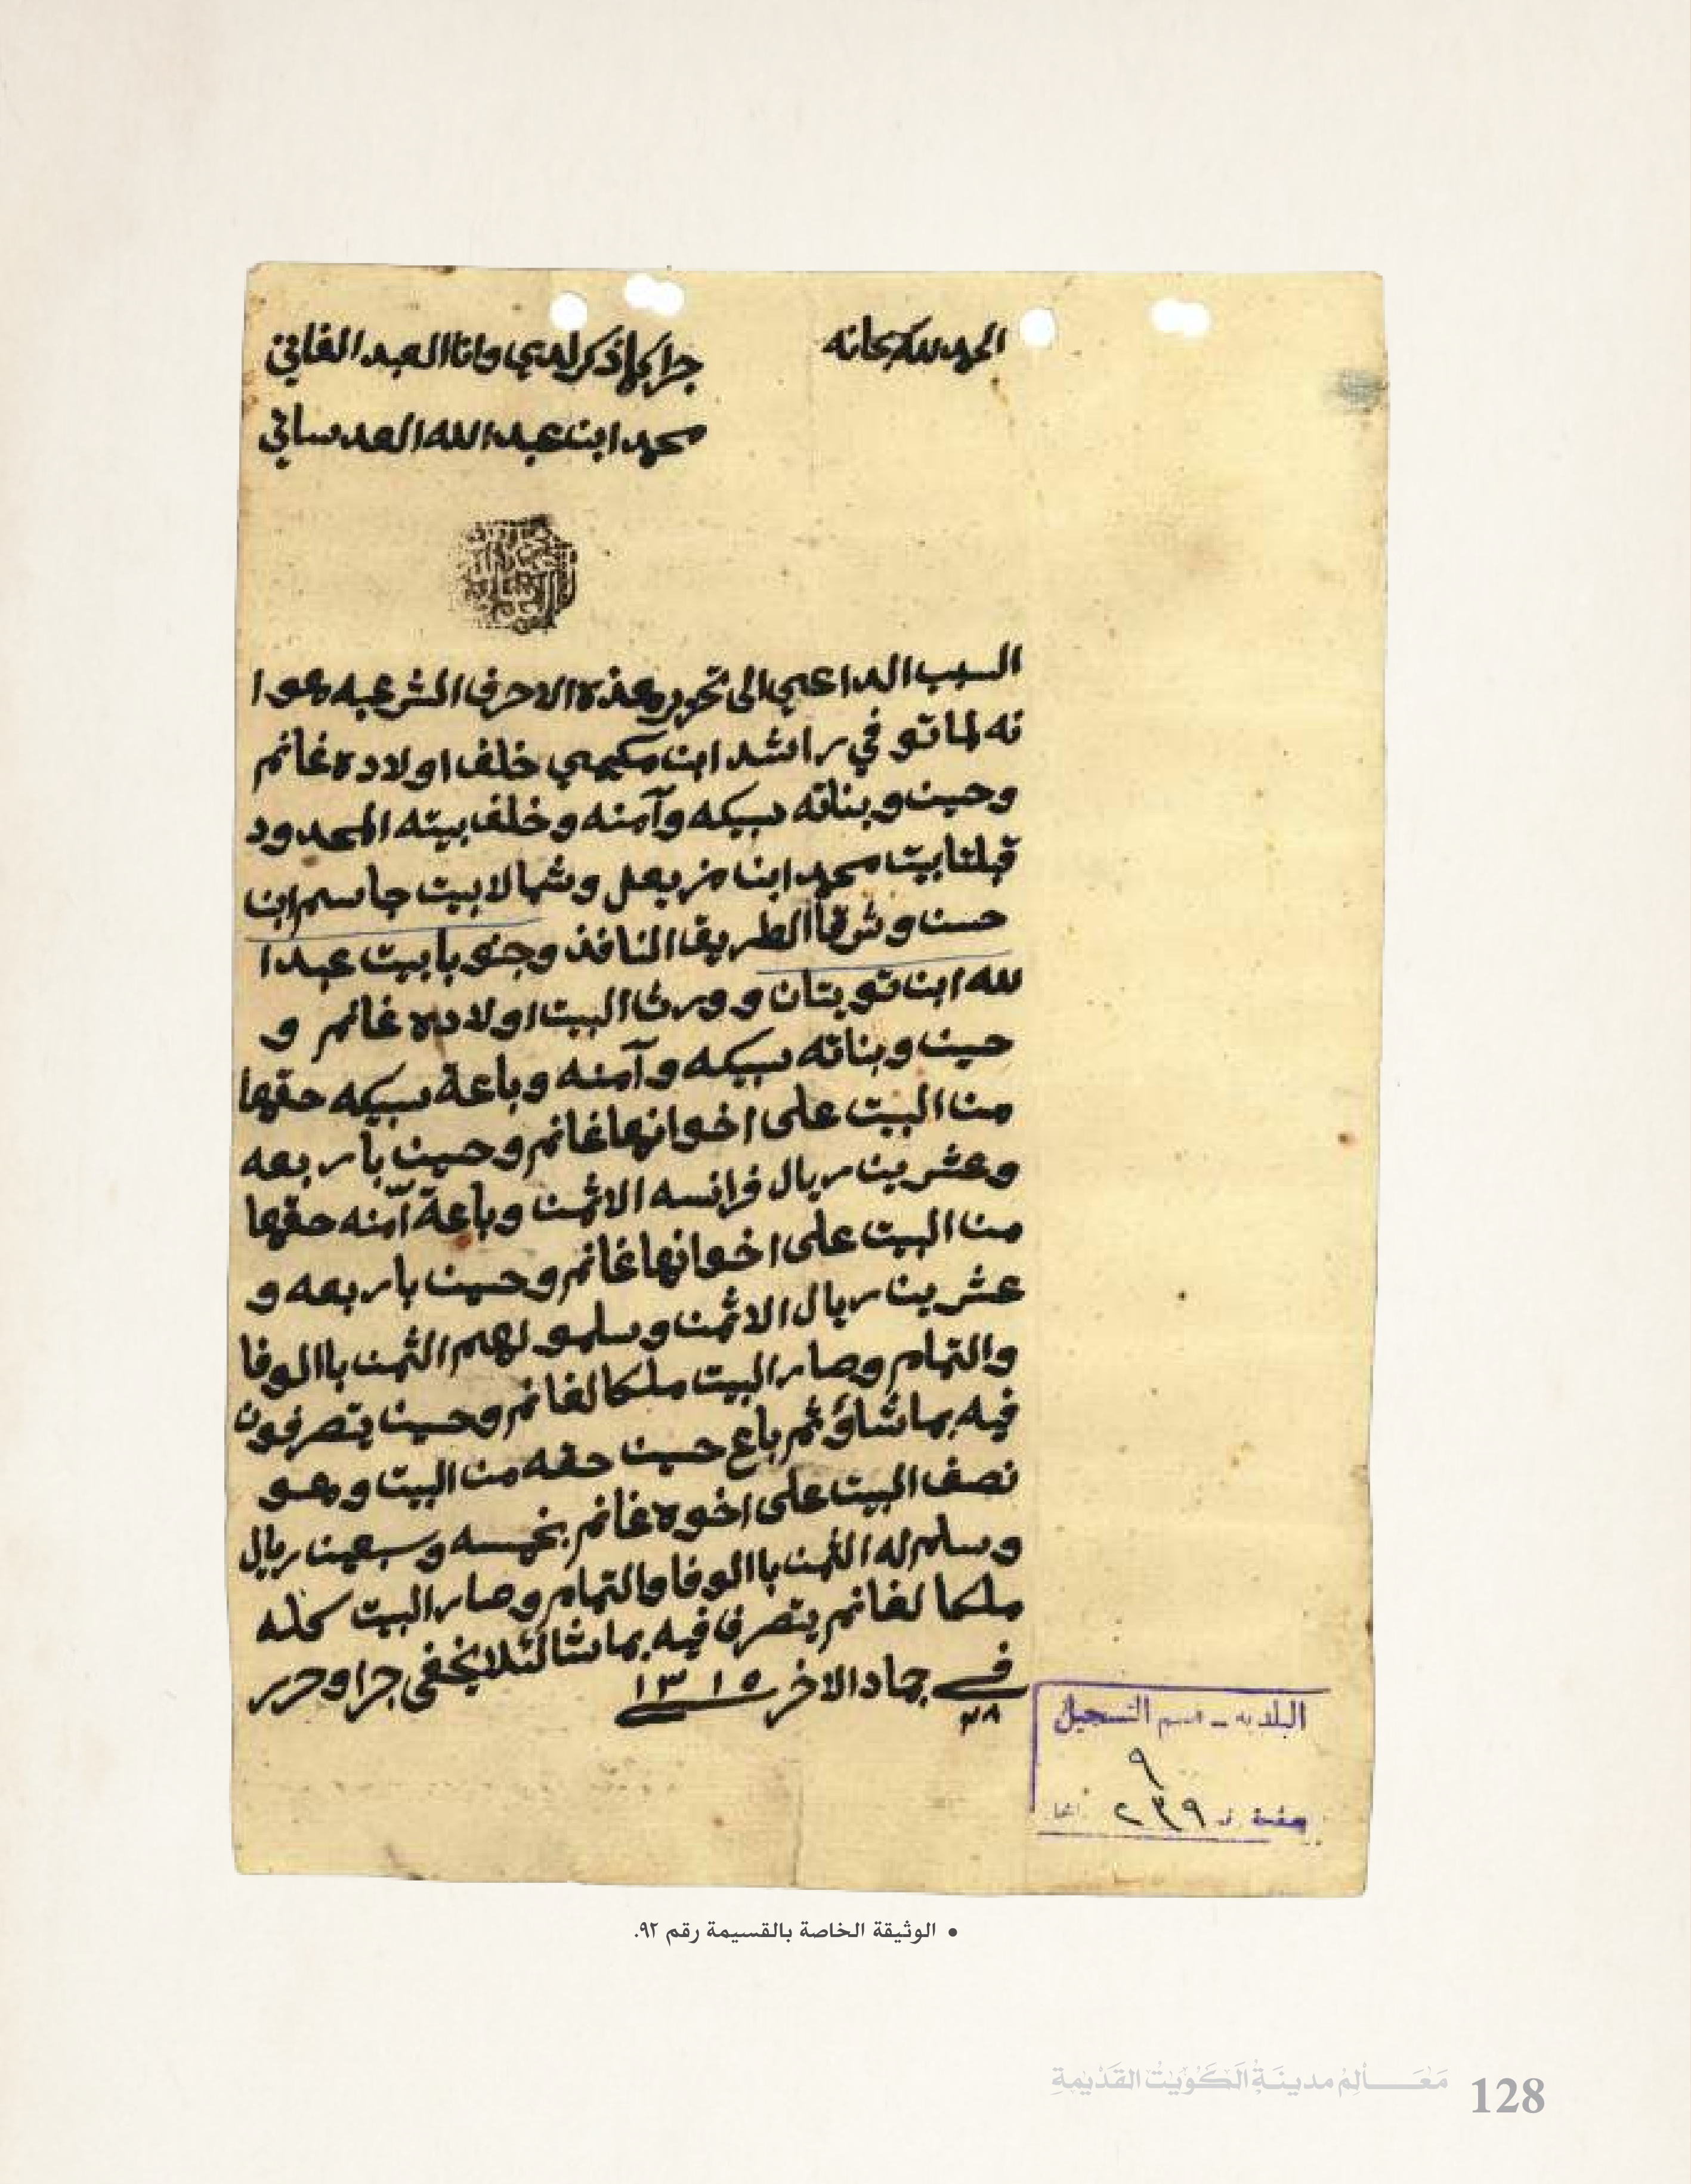 الحمد لله سبحانه
جرا كما ذكر لدي وانا العبد الفاني
محمد ابن عبد الله العدساني
السبب الداعي الى تحرير هذه الاحرف الشرعيه هوا
نه لما توفي راشد ابن مكيمي خلف اولاده غانم
وحسين وبناته سبيكه وآمنه وخلف بيته المحدود
قبلتا بيت محمد ابن مزيعل وشمالا بيت جاسم ابن
حسن وشرقاً الطريق النافذ وجنوبا بيت عبد ا
لله ابن تويتان وورث البيت اولاده غانم و
حسين وبناته سبيكه وآمنه وباعة سبيكه حقها
من البيت على اخوانها غانم وحسين بأربعه
وعشرين ريال فرانسه الاثمن وباعة آمنه حقها
من البيت على اخوانها غانم وحسين باربعه و
عشرين ريال الاثمن وسلمو لهم الثمن باالوفا
والتمام وصار البيت ملكا لغانم وحسين يتصرفون
فيه بما شاؤ ثم باع حسين حقه من البيت وهو
نصف البيت على اخوه غانم بخمسه وسبعين ريال
وسلم له الثمن باالوفا والتمام وصار البيت كله
ملكا لغانم يتصرف فيه بما شا لئلا يخفى جرا وحرر
في ٢٨ جماد الاخر ١٣١٥
البلدية - قسم التسجيل
٩
صفحة ٢٣٩
• الوثيقة الخاصة بالقسيمة رقم ٩٢.
مَعَالِمُ مدينَةِ الكُوَيْتِ القَدْيمَةِ 128